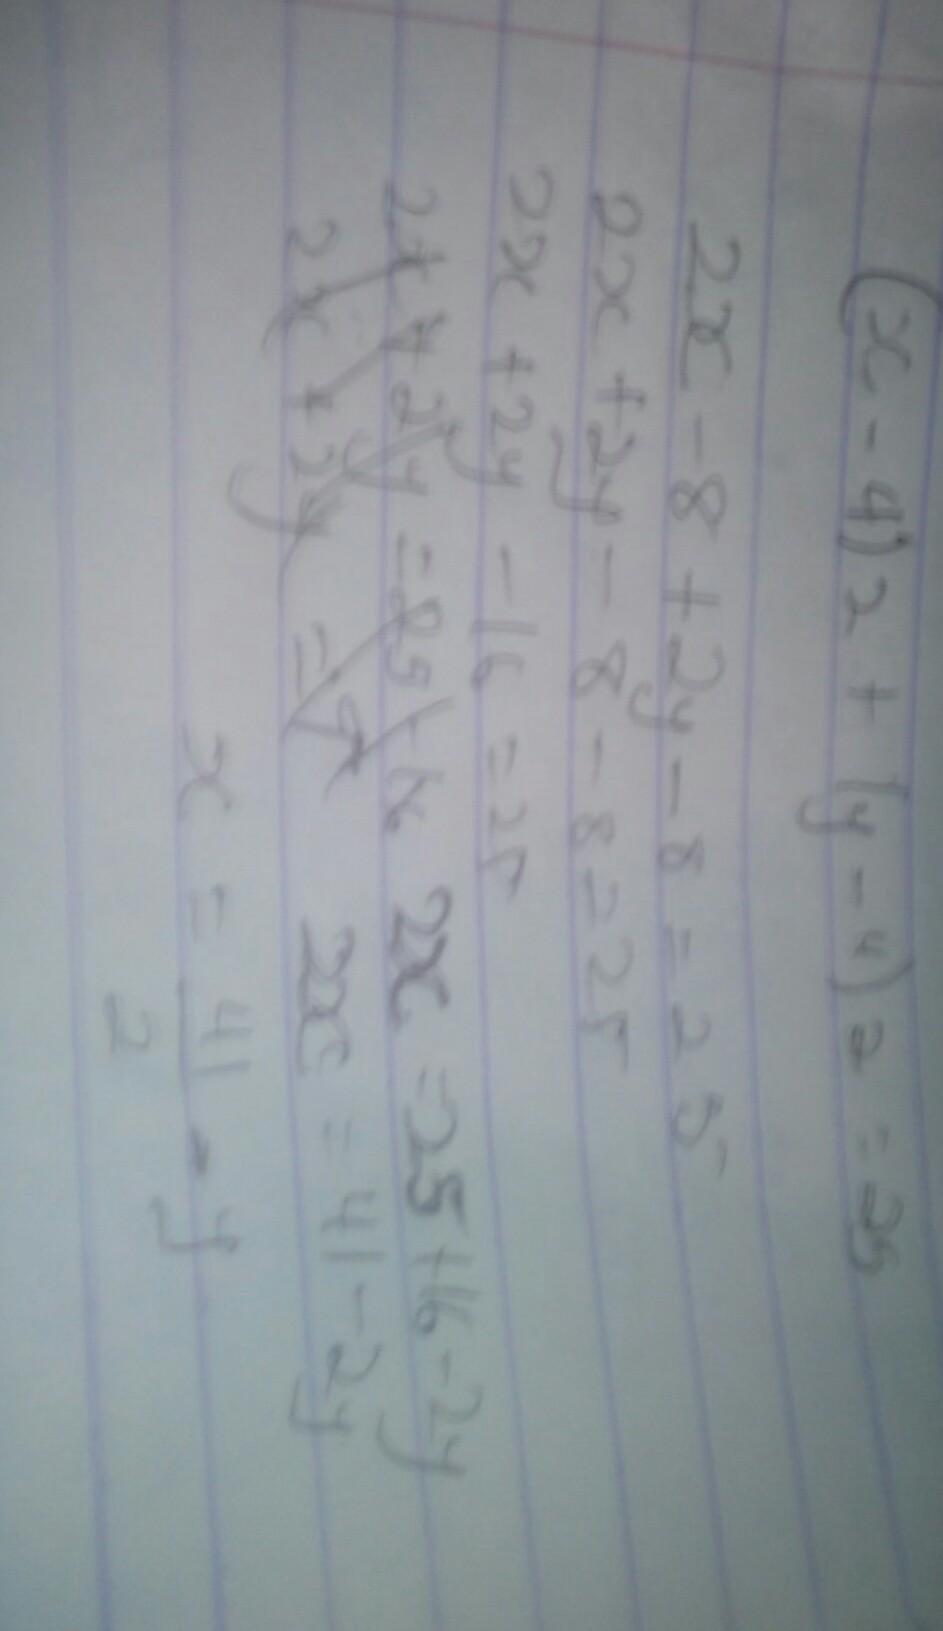 (x - 4)2 + (y - 4)2 = 25
2x - 8 + 2y - 8 = 25
2x + 2y - 8 - 8 = 25
2x + 2y - 16 = 25
2x + 2y = 25 - 16
2x + 2y = 9
2x = 25 + 16 - 2y
2x = 41 - 2y
x = 41/2 - y